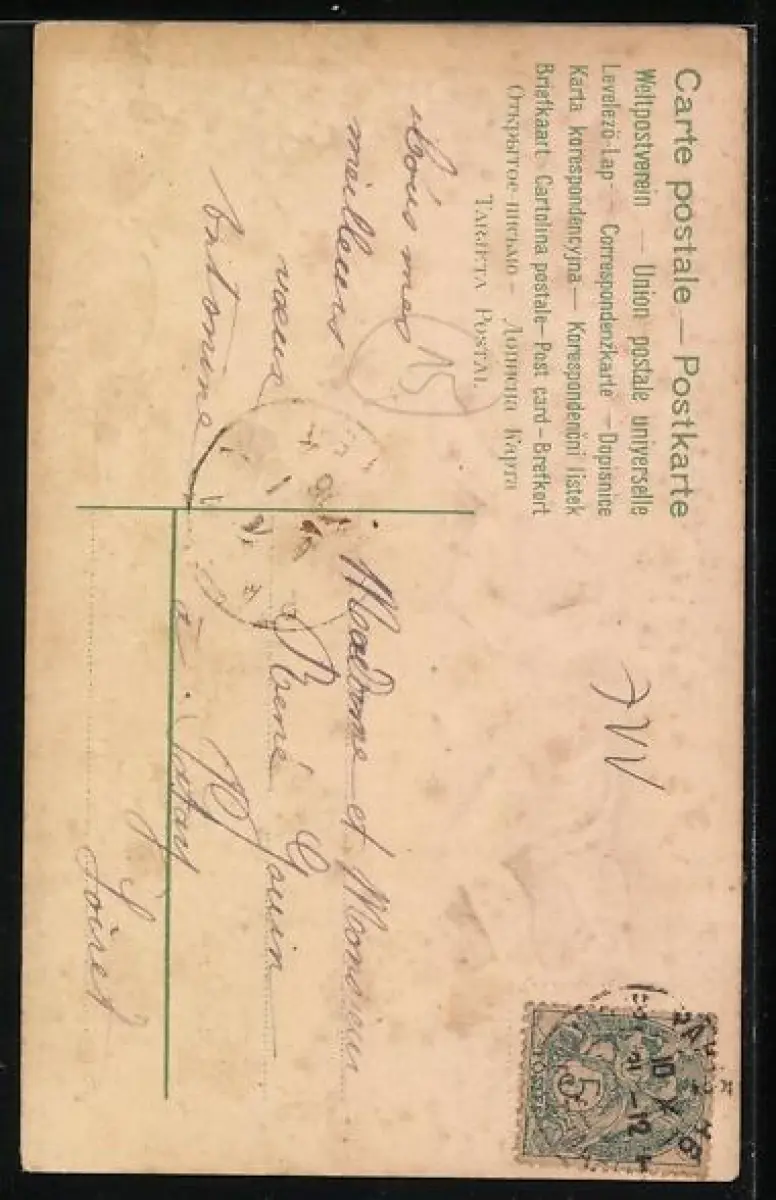 Carte postale — Postkarte
Weltpostverein — Union postale universelle
Levelező-Lap — Correspondenzkarte — Dopisnice
Karta korespondencyjna — Korespondenční listek
Briefkaart Cartolina postale — Post card — Brefkort
Открытое письмо — Дописна Карта
TARJETA POSTAL
15
mes
meilleurs
vœux
Antonine
Madame et Monsieur
René Gouin
à Patay
Loiret
5